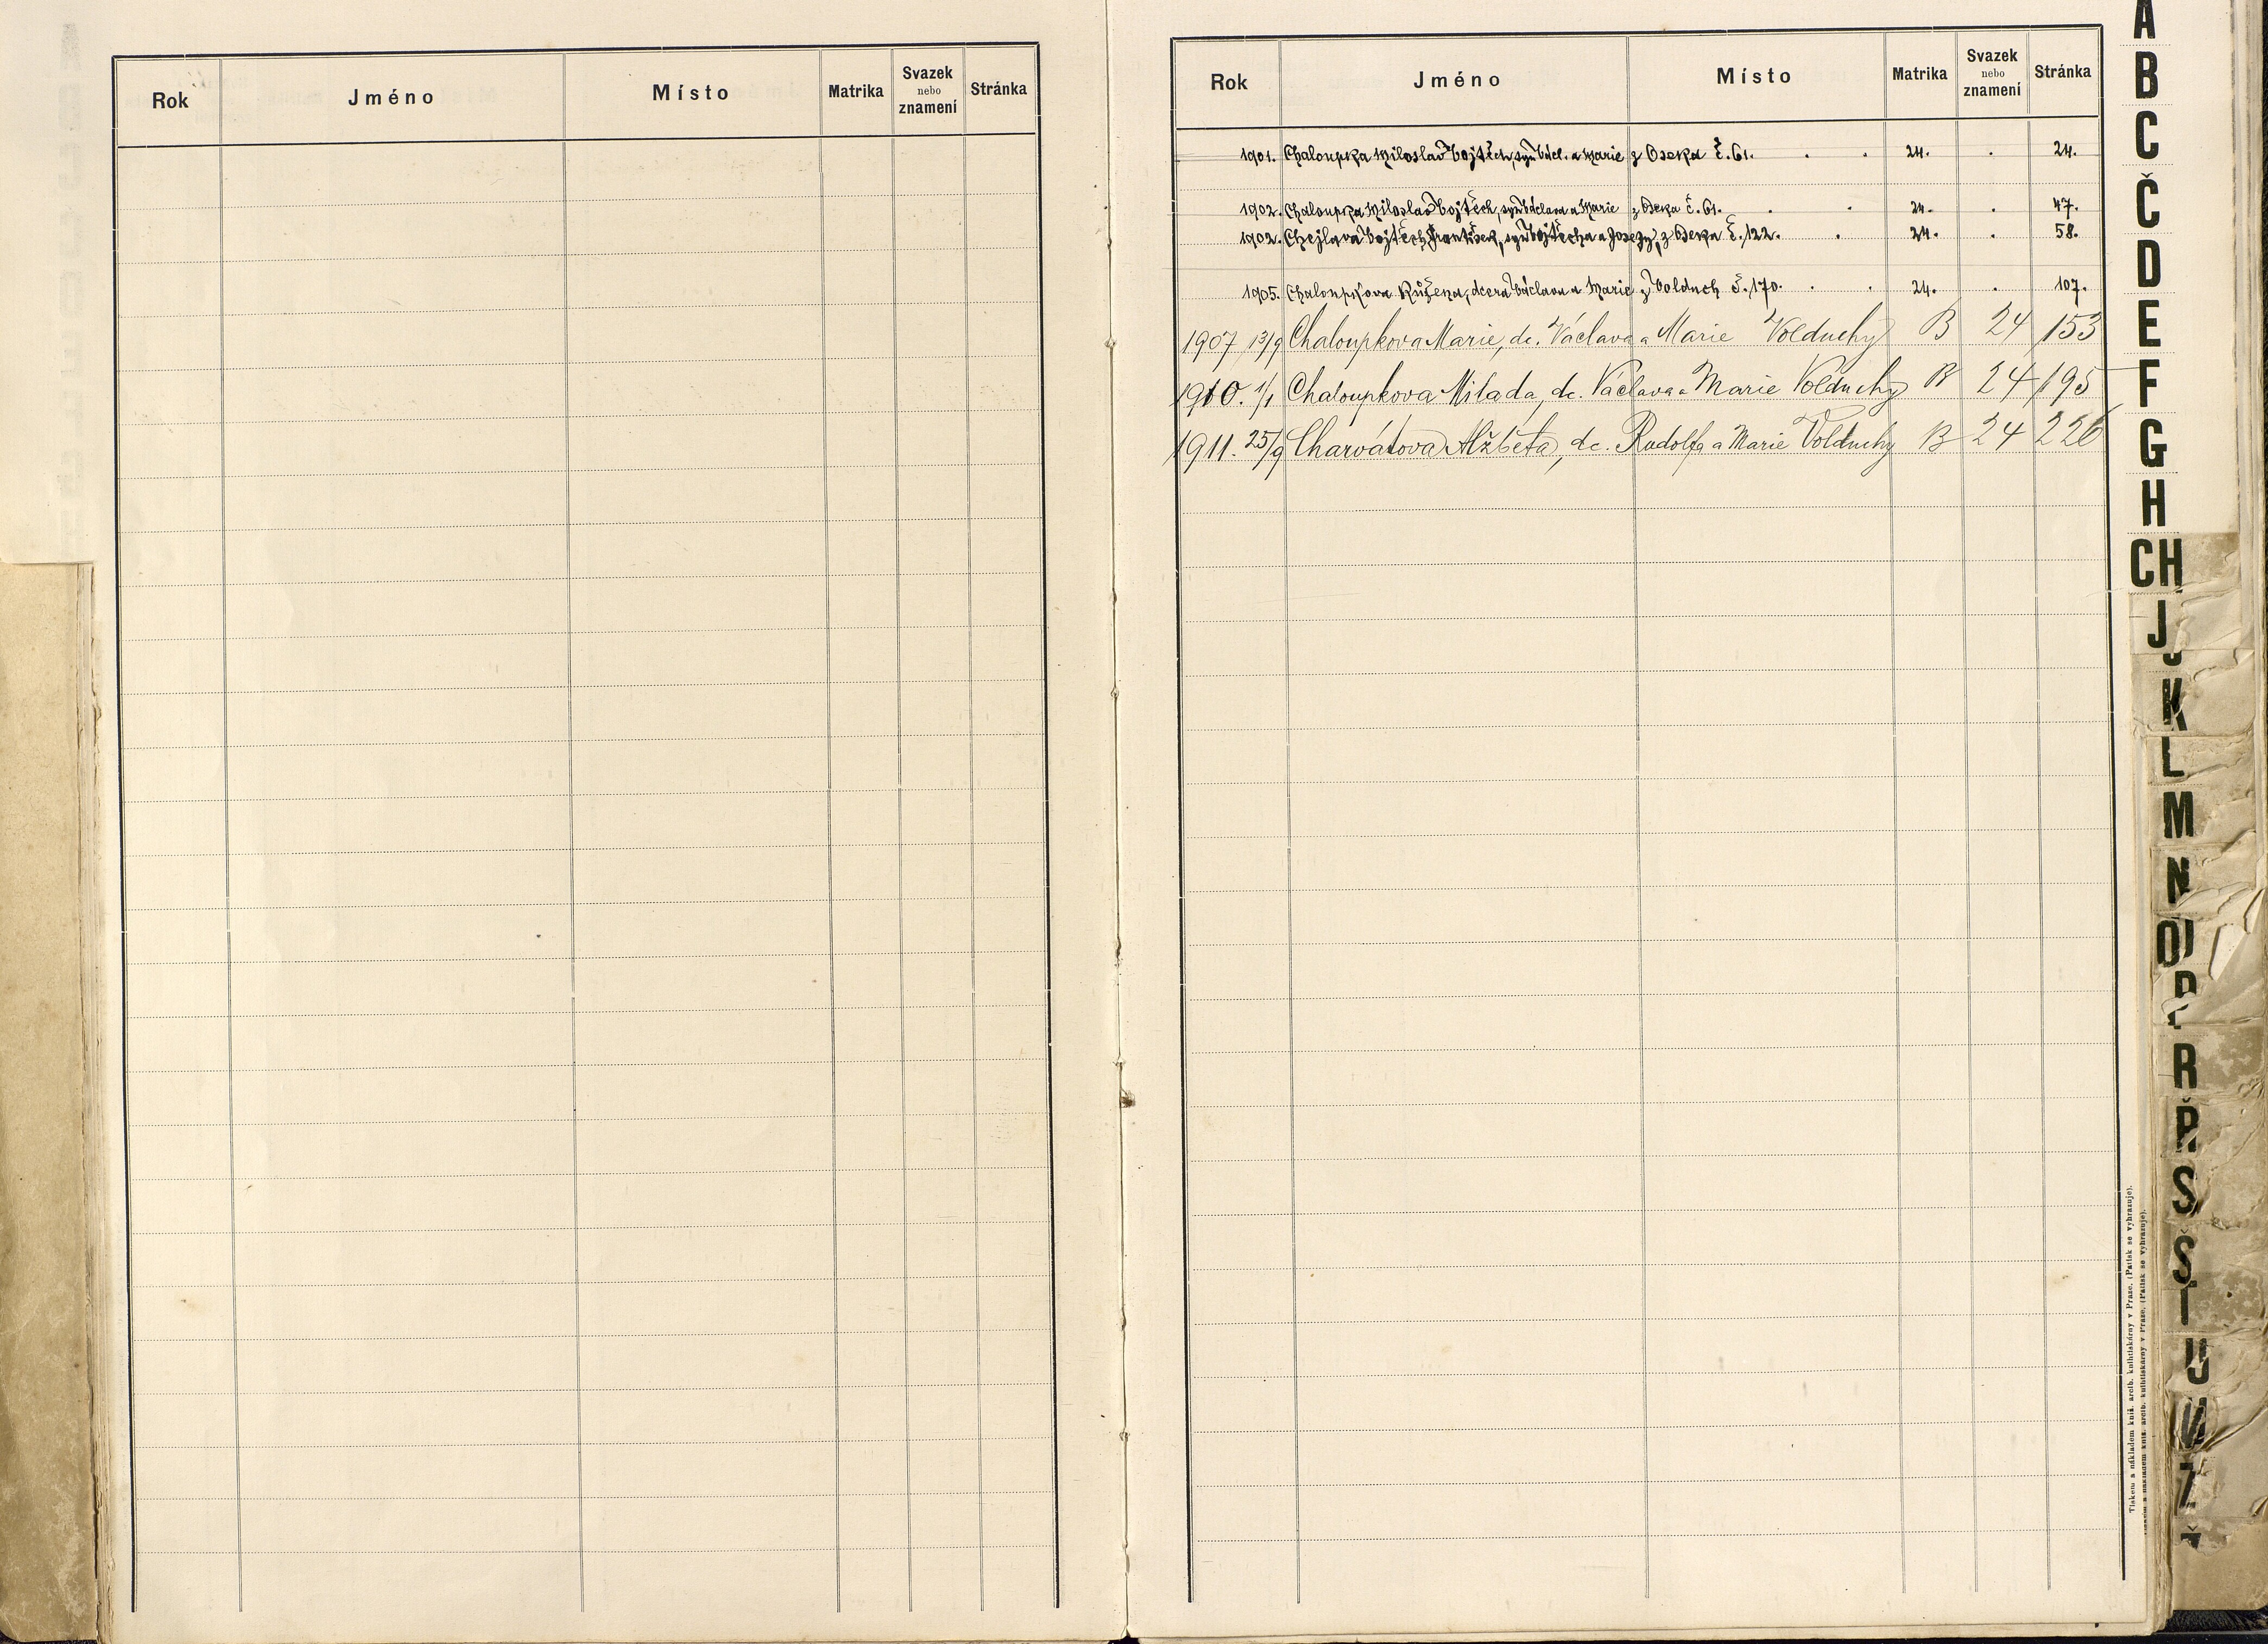 Rok Jméno Místo Matrika Svazek nebo znamení Stránka
Rok Jméno Místo Matrika Svazek nebo znamení Stránka
1901. Chaloupka Miloslav Vojtěch, syn Václ. a Marie z Oseka č. 61. . . 24. . 24.
1902. Chaloupka Miloslav Vojtěch, syn Václava a Marie z Oseka č. 61. . . 24. . 47.
1902. Chejlava Vojtěch František, syn Vojtěcha a Josefy, z Oseka č. 122. . 24. . 58.
1905. Chaloupkova Růžena, dcera Václava a Marie z Volduch č. 170. . . 24. . 107.
1907 13/9 Chaloupkova Marie, dc. Václava a Marie Volduchy B 24 153
1910. 1/1 Chaloupkova Milada, dc. Václava a Marie Volduchy B 24 195
1911. 25/9 Charvátova Alžběta, dc. Rudolfa a Marie Volduchy B 24 226
A
B
C
Č
D
E
F
G
H
CH
J
K
L
M
N
O
P
R
Ř
S
Š
T
U
V
Z
Ž
Tiskem a nákladem kníž. arcib. knihtiskárny v Praze. (Patisk se vyhrazuje).